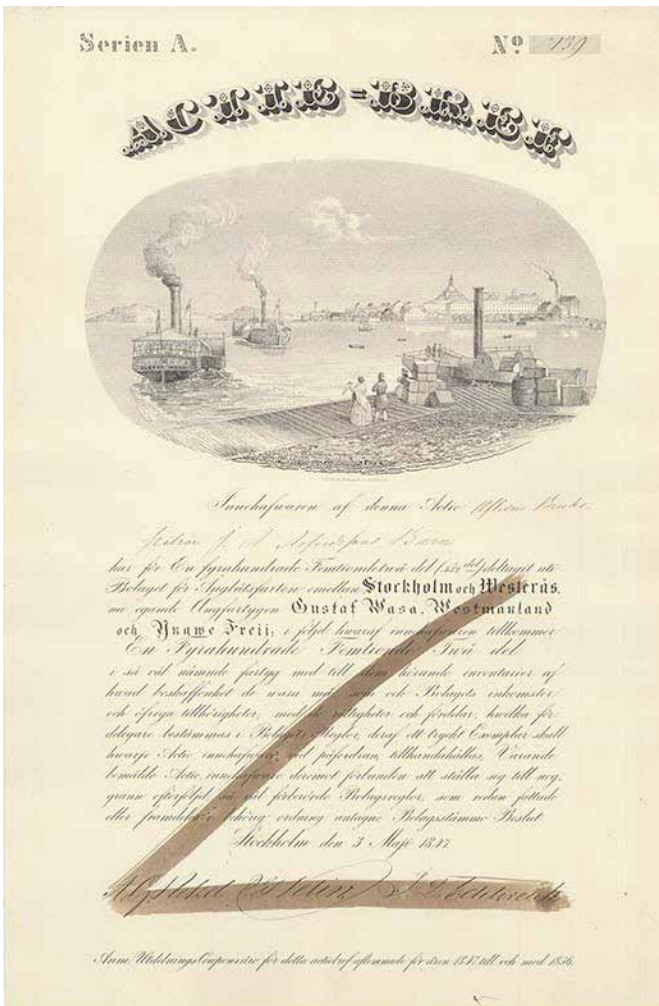 Serien A.
Nº 139
ACTIE=BREF
GUSTAF WASA
Innehafwaren af denna Actie
har för En fyrahundrade Femtiondetwå del deltagit uti
Bolaget för Ångbåtsfarten emellan Stockholm och Westerås,
nu egande Ångfartygen Gustaf Wasa, Westmanland
och Yngwe Freij; i följd hwaraf innehafwaren tillkommer
En Fyrahundrade Femtionde Twå del
i så väl nämnde fartyg med till dem hörande inventarier af
hwad beskaffenhet de wara må, som ock Bolagets inkomster
och öfriga tillhörigheter, med de rättigheter och fördelar, hwilka för
delegare bestämmas i Bolagets Reglor, deraf ett tryckt Exemplar skall
hwarje Actie innehafware, wid påfordran, tillhandahållas, Varande
bemälde Actie innehafware deremot förbunden att ställa sig till nog:
granne efterföljd så wäl förberörde Bolagsreglor, som redan fattade
eller framdeles i behörig ordning antagne Bolagsstämmo Beslut.
Stockholm den 3 Maji 1847
Anm. Utdelnings Coupons äro för detta actiebref aflemnade för åren 1847 till och med 1856.